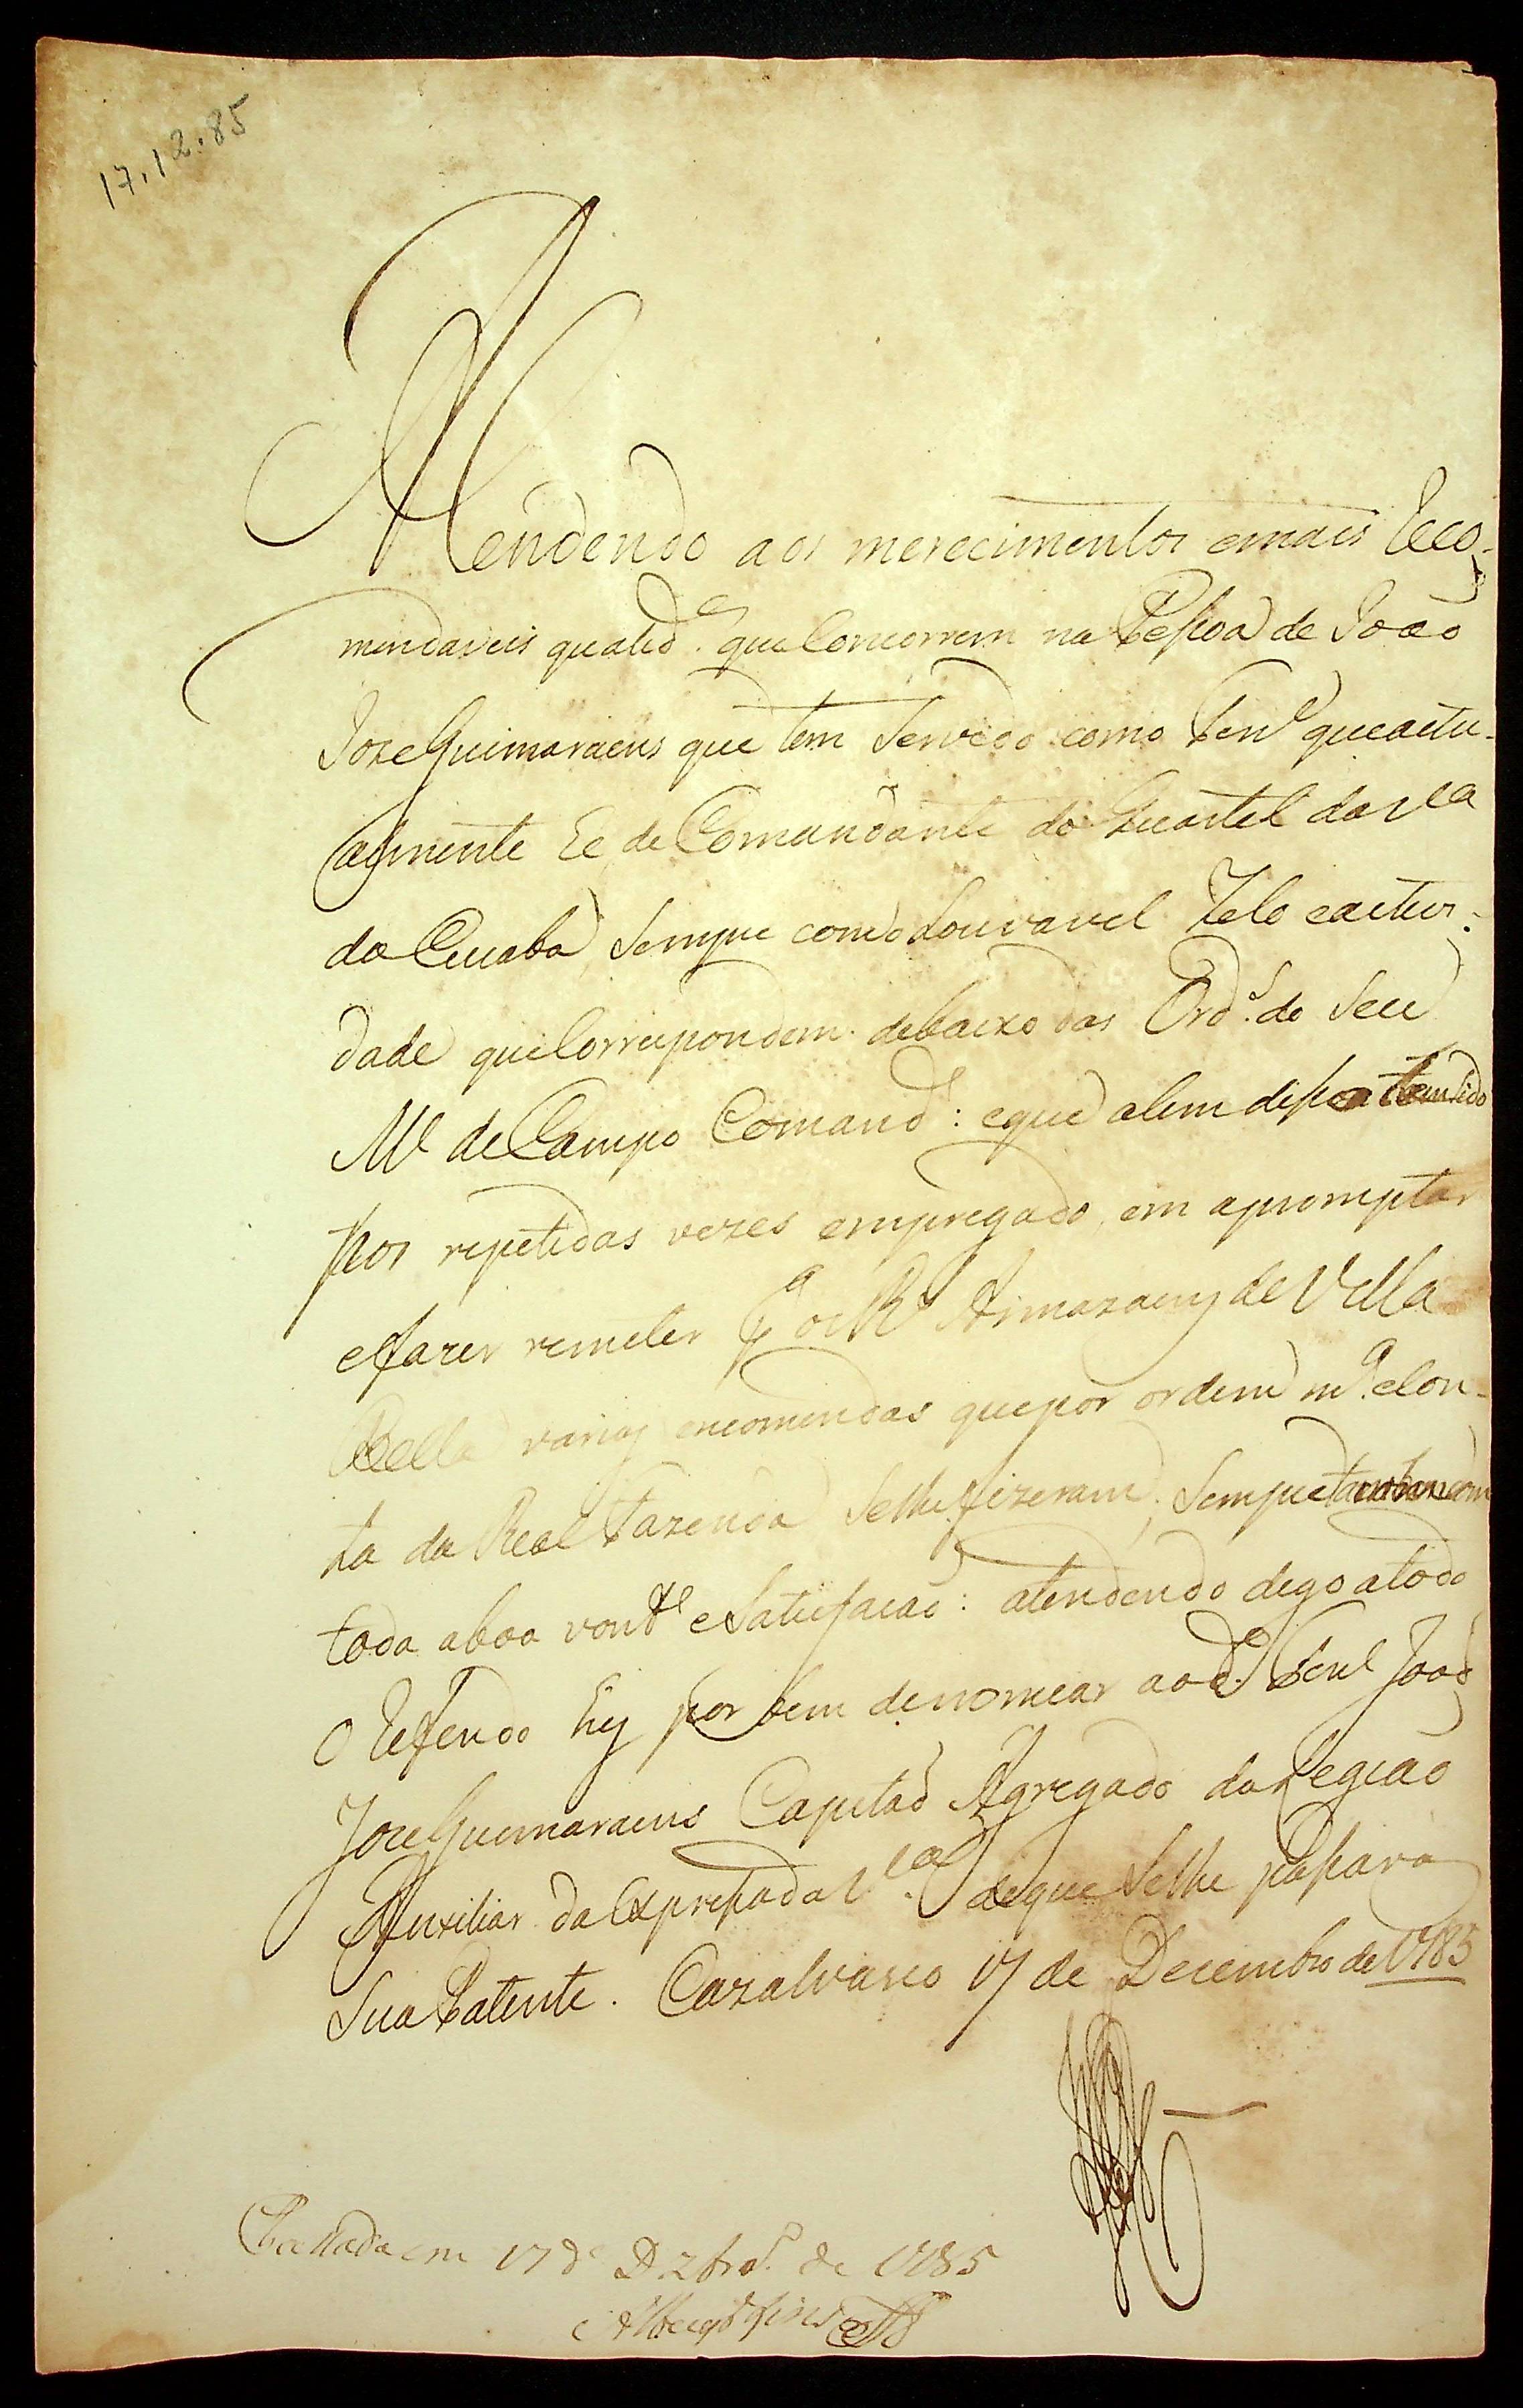 17.12.85
Attendendo aos merecimentos emais reco-
mendaveis qualid.es que Concorrem na Peſsoa de João
Joze Guimaraens que tem Servido como Ten.e queactu-
almente he de Comandante do Quartel da V.a
do Cuiabá, Sempre com o Louvavel Zelo eactivi-
dade que Correspondem debaixo das Ord.s do Seu
M.e de Campo Comand.e: eque alem diſso tem Sido
por repetidas vezes empregado em apromptar
efazer remeter p.a os R.s Armazaens de Villa
Bella varias encomendas quepor ordem m.a eCon-
ta da Real Fazenda Selhe fizeram, Sempre tambem com
toda aboa vont.e eSatisfacaõ: atendendo digo atodo
o referido hey por bem denomear aod.o Ten.e Joaõ
Joze Guimaraens Capitaõ Agregado da Legiaõ
Auxiliar da Expreſsada V.a deque Selhe paſsara
Sua Patente. Cazalvasco 17 de Decembro de 1785
Paſsada em 17 de Dzbro. de 1785